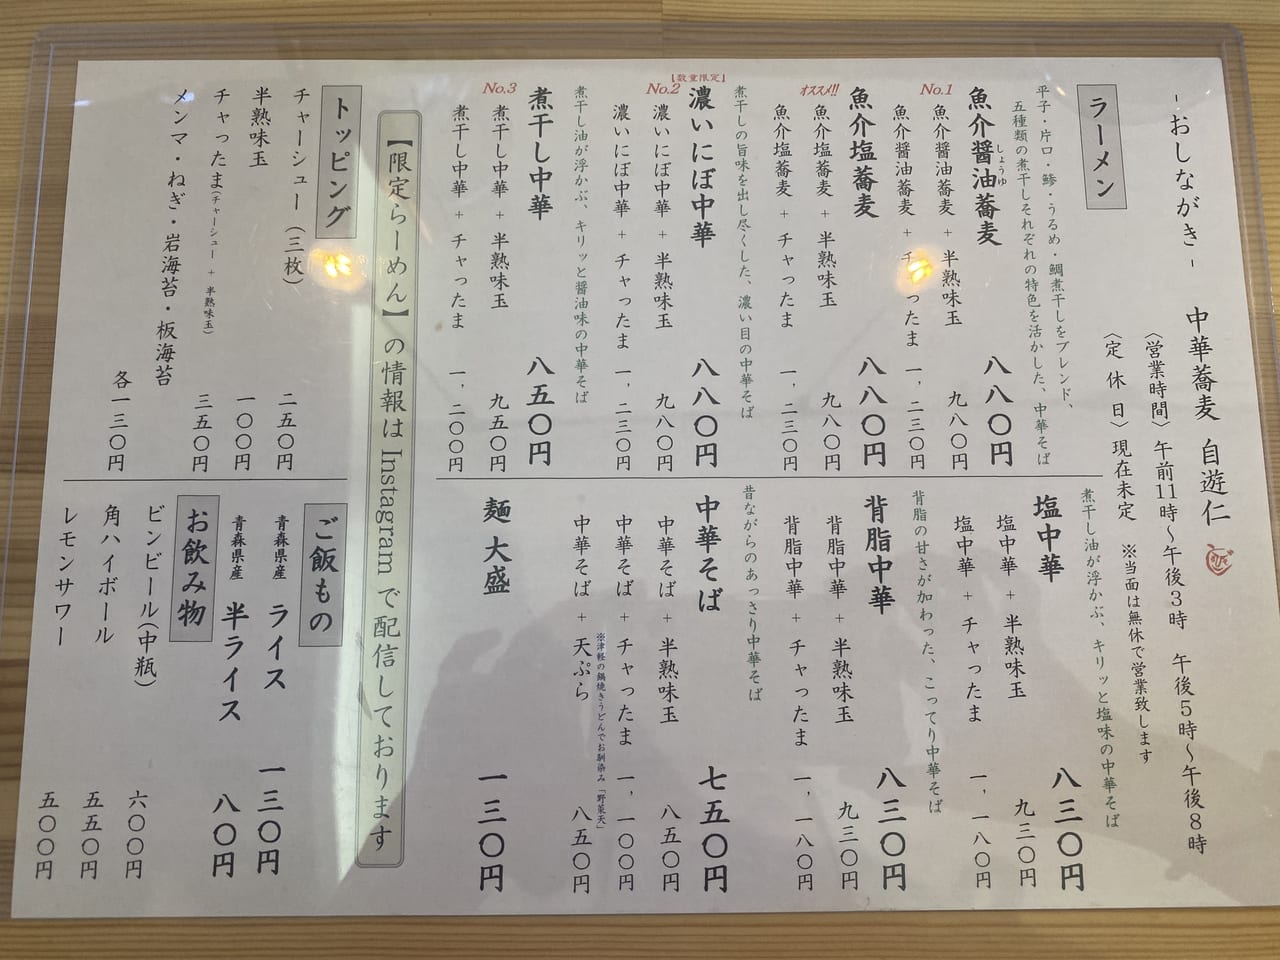 -おしながき-
中華蕎麦 自遊仁
〈営業時間〉午前11時～午後3時 午後5時～午後8時
〈定休日〉現在未定 ※当面は無休で営業致します
ラーメン
平子・片口・鯵・うるめ・鯛煮干しをブレンド、
五種類の煮干しそれぞれの特色を活かした、中華そば
No.1
魚介醤油蕎麦 八八〇円
しょうゆ
魚介醤油蕎麦 + 半熟味玉 九八〇円
魚介醤油蕎麦 + チャったま 一、二三〇円
オススメ!!
魚介塩蕎麦 八八〇円
魚介塩蕎麦 + 半熟味玉 九八〇円
魚介塩蕎麦 + チャったま 一、二三〇円
煮干しの旨味を出し尽くした、濃い目の中華そば
【数量限定】
No.2
濃いにぼ中華 八八〇円
濃いにぼ中華 + 半熟味玉 九八〇円
濃いにぼ中華 + チャったま 一、二三〇円
煮干し油が浮かぶ、キリッと醤油味の中華そば
No.3
煮干し中華 八五〇円
煮干し中華 + 半熟味玉 九五〇円
煮干し中華 + チャったま 一、二〇〇円
煮干し油が浮かぶ、キリッと塩味の中華そば
塩中華 八三〇円
塩中華 + 半熟味玉 九三〇円
塩中華 + チャったま 一、一八〇円
背脂の甘さが加わった、こってり中華そば
背脂中華 八三〇円
背脂中華 + 半熟味玉 九三〇円
背脂中華 + チャったま 一、一八〇円
昔ながらのあっさり中華そば
中華そば 七五〇円
中華そば + 半熟味玉 八五〇円
中華そば + チャったま 一、一〇〇円
※津軽の鍋焼きうどんでお馴染み「野菜天」
中華そば + 天ぷら 八五〇円
麺大盛 一三〇円
【限定らーめん】の情報は Instagram で配信しております
トッピング
チャーシュー(三枚) 二五〇円
半熟味玉 一〇〇円
チャったま(チャーシュー + 半熟味玉) 三五〇円
メンマ・ねぎ・岩海苔・板海苔
各一三〇円
ご飯もの
青森県産 ライス 一三〇円
青森県産 半ライス 八〇円
お飲み物
ビンビール(中瓶) 六〇〇円
角ハイボール 五五〇円
レモンサワー 五〇〇円